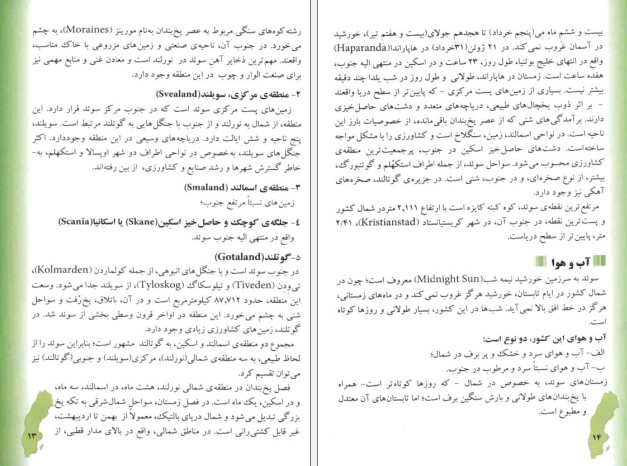 رشته کوه‌های سنگی مربوط به عصر یخ‌بندان به‌نام مورینز (Moraines)، به چشم
می‌خورد. در جنوب آن، ناحیه‌ی صنعتی و زمین‌های مزروعی با خاک مناسب،
واقعند. مهم‌ترین ذخایر آهن سوئد در نورلند است و معادن غنی و منابع مهمی نیز
برای صنعت الوار و چوب در این منطقه وجود دارد.
۲- منطقه‌ی مرکزی، سویلند (Svealand)
زمین‌های پست مرکزی سوئد است که در جنوب مرکز سوئد قرار دارد. این
منطقه، از شمال به نورلند و از جنوب با جنگل‌هایی به گوتلند مرتبط است. سویلند،
پنج ناحیه و شش ایالت دارد. دریاچه‌های وسیعی در این منطقه وجوددارد. اکثر
جنگل‌های سویلند، به‌خصوص در نواحی اطراف دو شهر اوپسالا و استکهلم، به-
خاطر گسترش شهرها و رشد صنایع و کشاورزی، از بین رفته‌اند.
۳- منطقه‌ی اسمالند (Smaland)
زمین‌های نسبتاً مرتفع جنوب؛
۴- جلگه‌ی کوچک و حاصل‌خیز اسکین (Skane) یا اسکانیا (Scania)
واقع در منتهی الیه جنوب سوئد.
۵- گوتلند (Gotaland)
در جنوب سوئد است و با جنگل‌های انبوهی، از جمله کولماردن (Kolmarden)،
تی‌ودن (Tiveden) و تیلوسکاگ (Tyloskog)، از سویلند جدا می‌شود. وسعت
این منطقه، حدود ۸۷٬۷۱۲ کیلومترمربع است و در آن، باتلاق، یخ‌رفت و سواحل
شنی به چشم می‌خورد. این منطقه در اواخر قرون وسطی بخشی از سوئد شد. در
گوتلند، زمین‌های کشاورزی زیادی وجود دارد.
مجموع دو منطقه‌ی اسمالند و اسکین، به گوتالند مشهور است؛ بنابراین سوئد را از
لحاظ طبیعی، به سه منطقه‌ی شمالی(نورلند)، مرکزی(سویلند) و جنوبی(گوتالند) نیز
می‌توان تقسیم کرد.
فصل یخ‌بندان در منطقه‌ی شمالی نورلند، هشت ماه، در اسمالند، سه ماه،
و در اسکین، یک ماه است. در فصل زمستان، سواحل شمال‌شرقی به تکه یخ
بزرگی تبدیل می‌شود و شمال دریای بالتیک، معمولاً از بهمن تا اردیبهشت،
غیر قابل کشتی‌رانی است. در مناطق شمالی، واقع در بالای مدار قطبی، از
۱۳
بیست و ششم ماه می(پنجم خرداد) تا هجدهم جولای(بیست و هفتم تیر)، خورشید
در آسمان غروب نمی‌کند. در ۲۱ ژوئن(۳۱خرداد) در هاپاراندا(Haparanda)
واقع در انتهای خلیج بوتنیا، طول روز، ۲۳ ساعت و در اسکین در منتهی الیه جنوب،
هفده ساعت است. زمستان در هاپاراند، طولانی و طول روز در شب یلدا چند دقیقه
بیشتر نیست. بسیاری از زمین‌های پست مرکزی - که پایین‌تر از سطح دریا واقعند
- بر اثر ذوب یخچال‌های طبیعی، دریاچه‌های متعدد و دشت‌های حاصل‌خیزی
دارند. برآمدگی‌های شنی که از عصر یخ‌بندان باقی‌مانده، از خصوصیات بارز این
ناحیه است. در نواحی اسمالند، زمین، سنگلاخ است و کشاورزی را با مشکل مواجه
ساخته‌است. دشت‌های حاصل‌خیز اسکین در جنوب، پرجمعیت‌ترین منطقه‌ی
کشاورزی محسوب می‌شود. سواحل سوئد، از جمله اطراف استکهلم و گوتنبورگ،
بیشتر، از نوع صخره‌ای، و در جنوب، شنی است. در جزیره‌ی گوتالند، صخره‌های
آهکی نیز وجود دارد.
مرتفع‌ترین نقطه‌ی سوئد، کوه کبنه کایزه است با ارتفاع ۲٬۱۱۱ متردر شمال کشور
و پست‌ترین نقطه، در جنوب آن، در شهر کریستیانستاد (Kristianstad) ۲/۴۱
متر، پایین‌تر از سطح دریاست.
آب و هوا
سوئد به سرزمین خورشید نیمه شب(Midnight Sun) معروف است؛ چون در
شمال کشور در ایام تابستان، خورشید هرگز غروب نمی‌کند و در ماه‌های زمستانی،
هرگز در خط افق بالا نمی آید. شب‌ها در این کشور، بسیار طولانی و روزها کوتاه
است.
آب و هوای این کشور، دو نوع است:
الف- آب و هوای سرد و خشک و پر برف در شمال؛
ب- آب و هوای نسبتاً سرد و مرطوب در جنوب.
زمستان‌های سوئد، به خصوص در شمال - که روزها کوتاه‌تر است- همراه
با یخ‌بندان‌های طولانی و بارش سنگین برف است؛ اما تابستان‌های آن معتدل
و مطبوع است.
۱۴